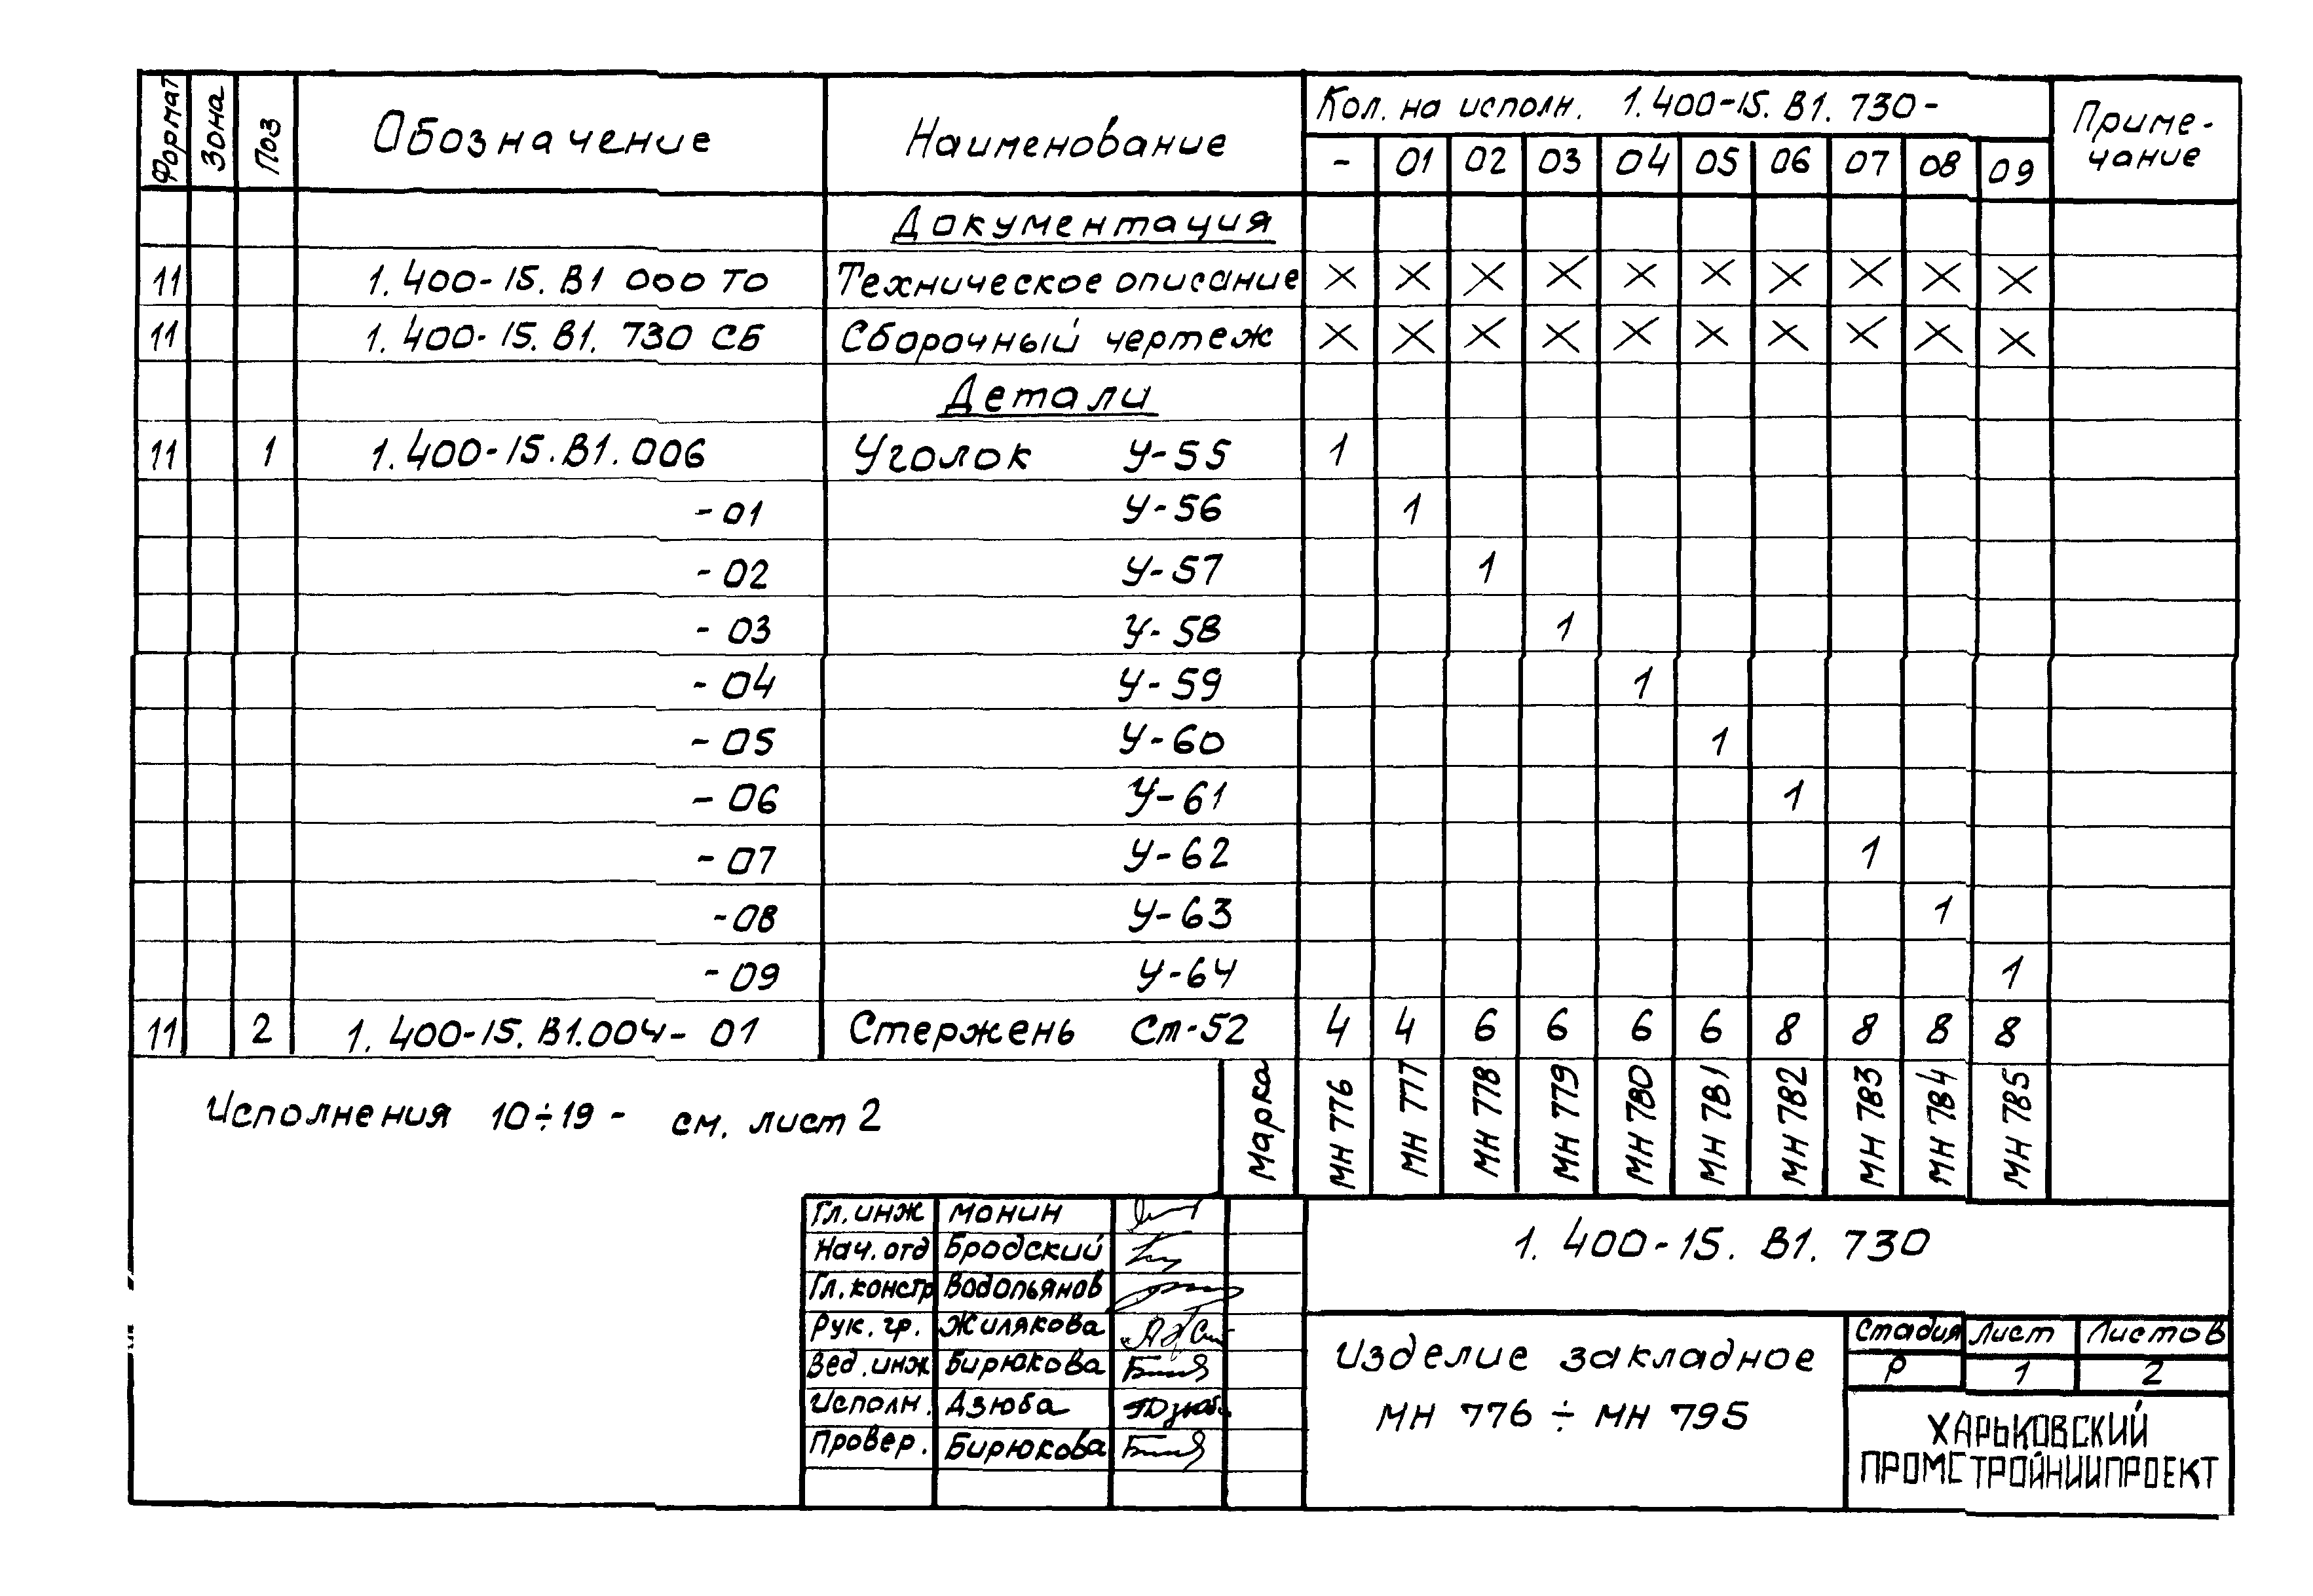 Формат Зона Поз Обозначение Наименование Кол. на исполн. 1.400-15.В1.730- Приме-
чание
- 01 02 03 04 05 06 07 08 09
Документация
11 1.400-15.В1 000 ТО Техническое описание × × × × × × × × × ×
11 1.400-15.В1.730 СБ Сборочный чертеж × × × × × × × × × ×
Детали
11 1 1.400-15.В1.006 Уголок У-55 1
-01 У-56 1
-02 У-57 1
-03 У-58 1
-04 У-59 1
-05 У-60 1
-06 У-61 1
-07 У-62 1
-08 У-63 1
-09 У-64 1
11 2 1.400-15.В1.004-01 Стержень Ст-52 4 4 6 6 6 6 8 8 8 8
Исполнения 10÷19 - см. лист 2
Марка МН 776 МН 777 МН 778 МН 779 МН 780 МН 781 МН 782 МН 783 МН 784 МН 785
Гл. инж Монин
Нач. отд Бродский
Гл. констр Водопьянов
Рук. гр. Жилякова
Вед. инж Бирюкова
Исполн. Дзюба
Провер. Бирюкова
1.400-15.В1.730
Изделие закладное
МН 776 ÷ МН 795
Стадия Лист Листов
Р 1 2
ХАРЬКОВСКИЙ
ПРОМСТРОЙНИИПРОЕКТ